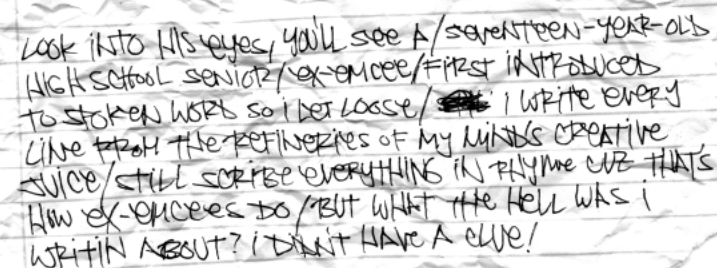 LOOK INTO HIS EYES, YOU'LL SEE A/SEVENTEEN-YEAR-OLD
HIGH SCHOOL SENIOR/EX-EMCEE/FIRST INTRODUCED
TO SPOKEN WORD SO I LET LOOSE/ I WRITE EVERY
LINE FROM THE REFINERIES OF MY MIND'S CREATIVE
JUICE/STILL SCRIBE EVERYTHING IN RHYME CUZ THAT'S
HOW EX-EMCEES DO/BUT WHAT THE HELL WAS I
WRITIN ABOUT? I DIDN'T HAVE A CLUE!